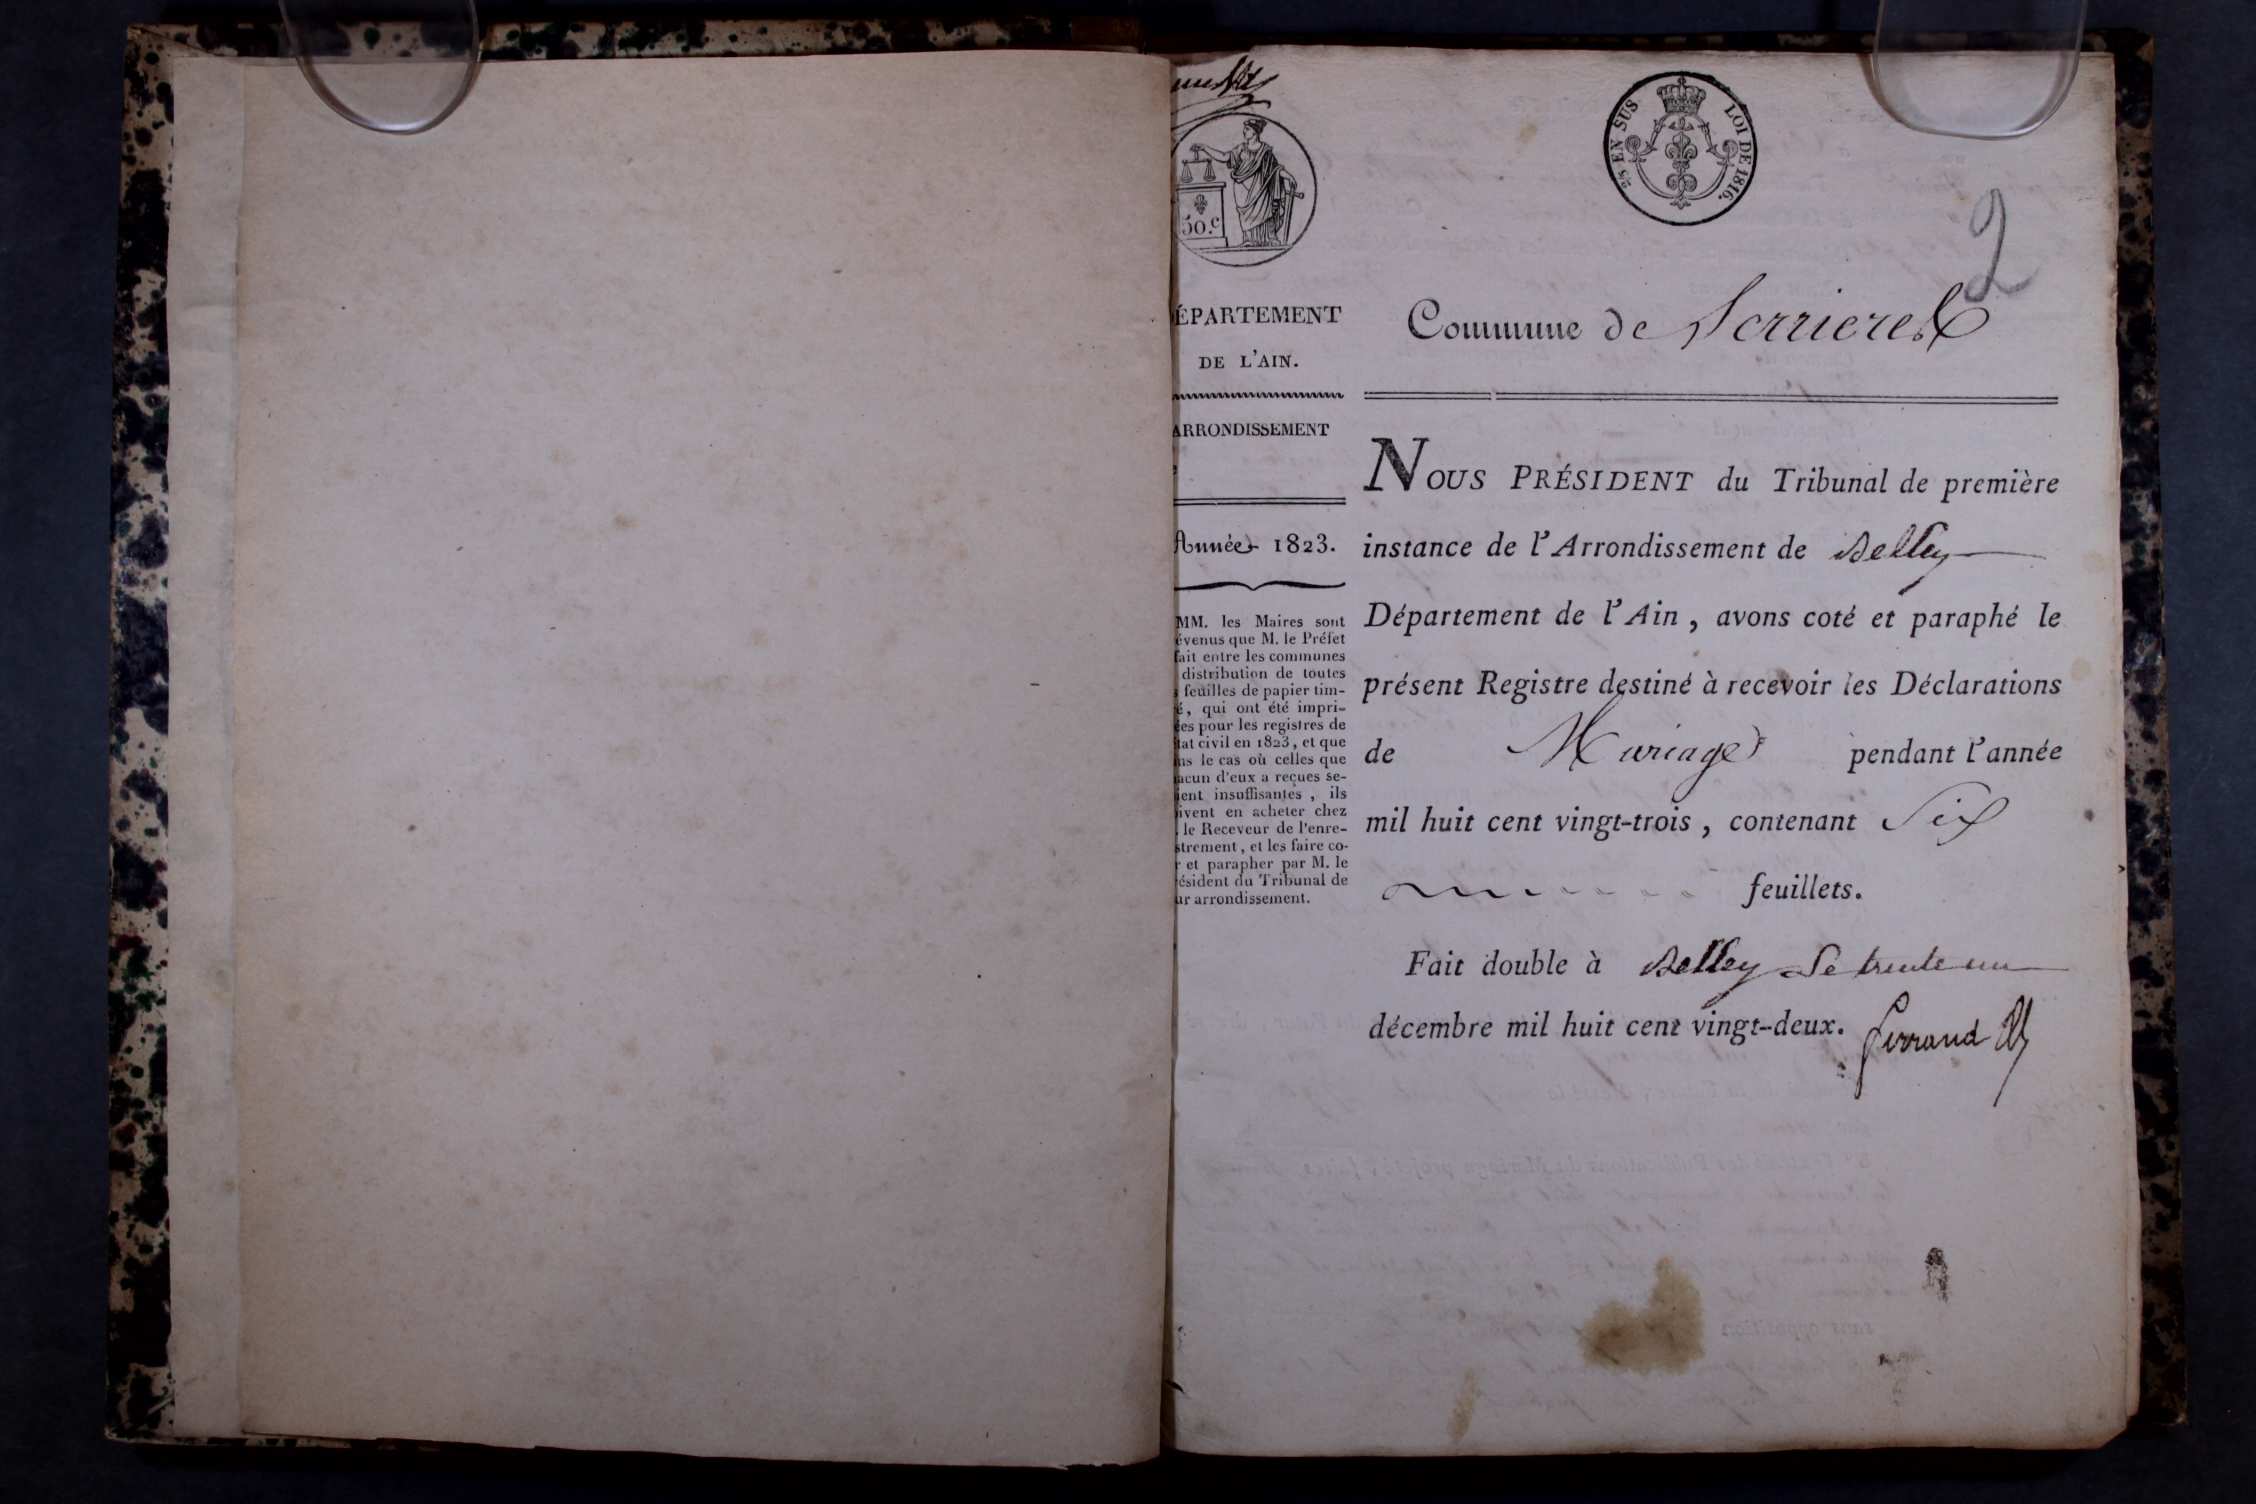 50.c
2/5 EN SUS LOI DE 1816.
2
ÉPARTEMENT
DE L'AIN.
ARRONDISSEMENT
Année 1823.
MM. les Maires sont
évenus que M. le Préfet
fait entre les communes
distribution de toutes
s feuilles de papier tim-
é, qui ont été impri-
ées pour les registres de
tat civil en 1823, et que
ns le cas où celles que
acun d'eux a reçues se-
ient insuffisantes, ils
ivent en acheter chez
. le Receveur de l'enre-
strement, et les faire co-
r et parapher par M. le
résident du Tribunal de
ur arrondissement.
Commune de Serrieres
NOUS PRÉSIDENT du Tribunal de première
instance de l'Arrondissement de Belley
Département de l'Ain, avons coté et paraphé le
présent Registre destiné à recevoir les Déclarations
de Mariages pendant l'année
mil huit cent vingt-trois, contenant Six
feuillets.
Fait double à Belley Le trente un
décembre mil huit cent vingt-deux.